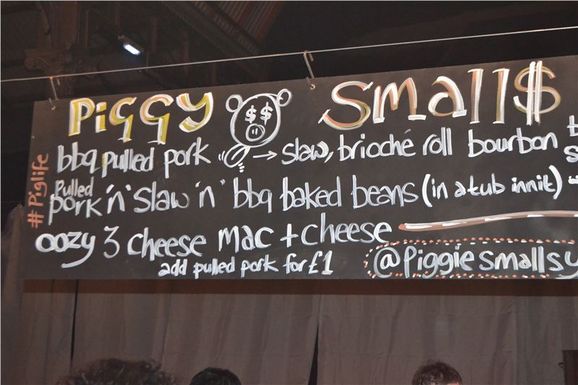 #Piglife
PiGGY Small$
bbq pulled pork → slaw, brioché roll bourbon
Pulled pork 'n' slaw 'n' bbq baked beans (in a tub innit)
oozy 3 cheese mac + cheese
add pulled pork for £1
@Piggiesmallsy